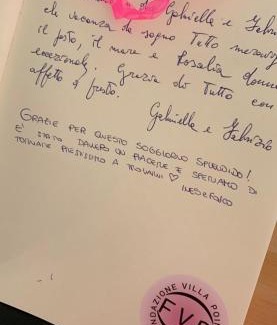 di Gabriella e Fabri
che vacanza da sogno Tutto meravig
il posto, il mare e Rosalia donna
eccezionale; Grazie di tutto con
affetto
Gabriella e Fabrizio
GRAZIE PER QUESTO SOGGIORNO SPLENDIDO!
E' STATO DAVVERO UN PIACERE E SPERIAMO DI
TORNARE PRESTISSIMO A TROVARVI ♡
NDAZIONE VILLA POI
FV